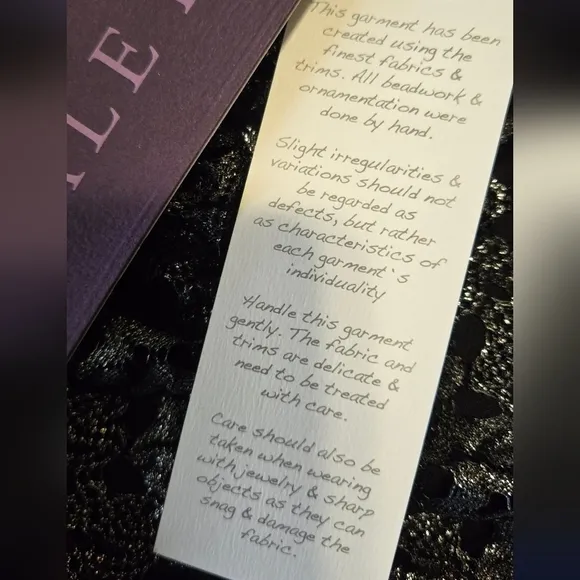 ILE
This garment has been
created using the
finest fabrics &
trims. All beadwork &
ornamentation were
done by hand.
Slight irregularities &
variations should not
be regarded as
defects, but rather
as characteristics of
each garment`s
individuality
Handle this garment
gently. The fabric and
trims are delicate &
need to be treated
with care.
Care should also be
taken when wearing
with jewelry & sharp
objects as they can
snag & damage the
fabric.